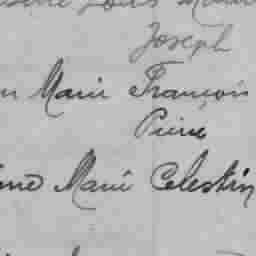 Joseph
Marie François
Pierre
Marie Celestin